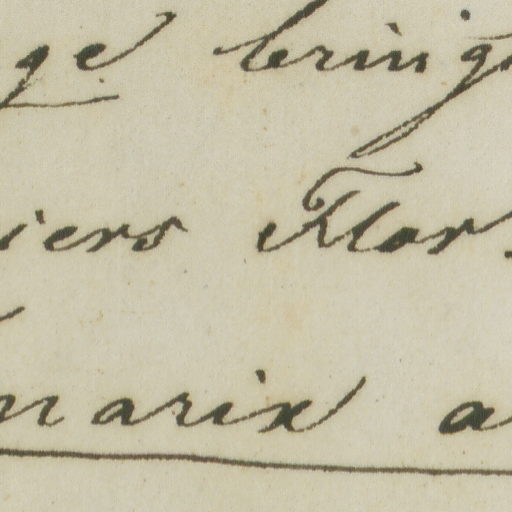 ge bring
iers Flor.
marix a